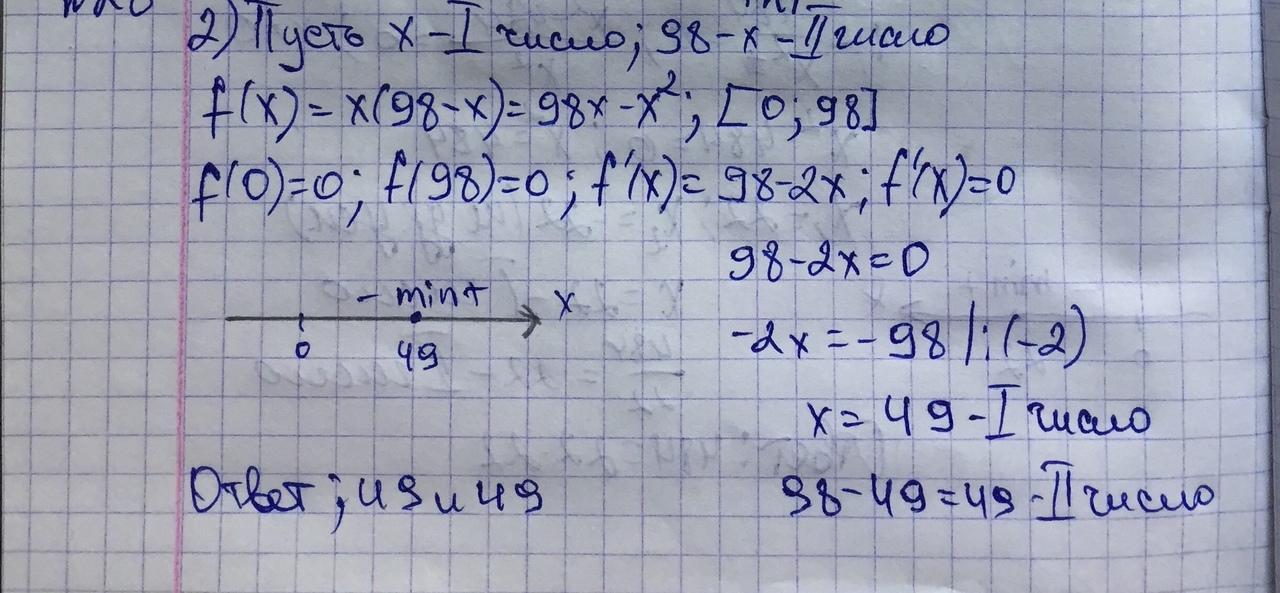 2) Пусть x - I число; 98 - x - II число
f(x) = x(98-x) = 98x - x²; [0; 98]
f(0)=0; f(98)=0; f'(x)= 98-2x; f'(x)=0
98-2x=0
- min + x
0 49
-2x = -98 |:(-2)
x = 49 - I число
Ответ; 49 и 49
98-49=49 - II число